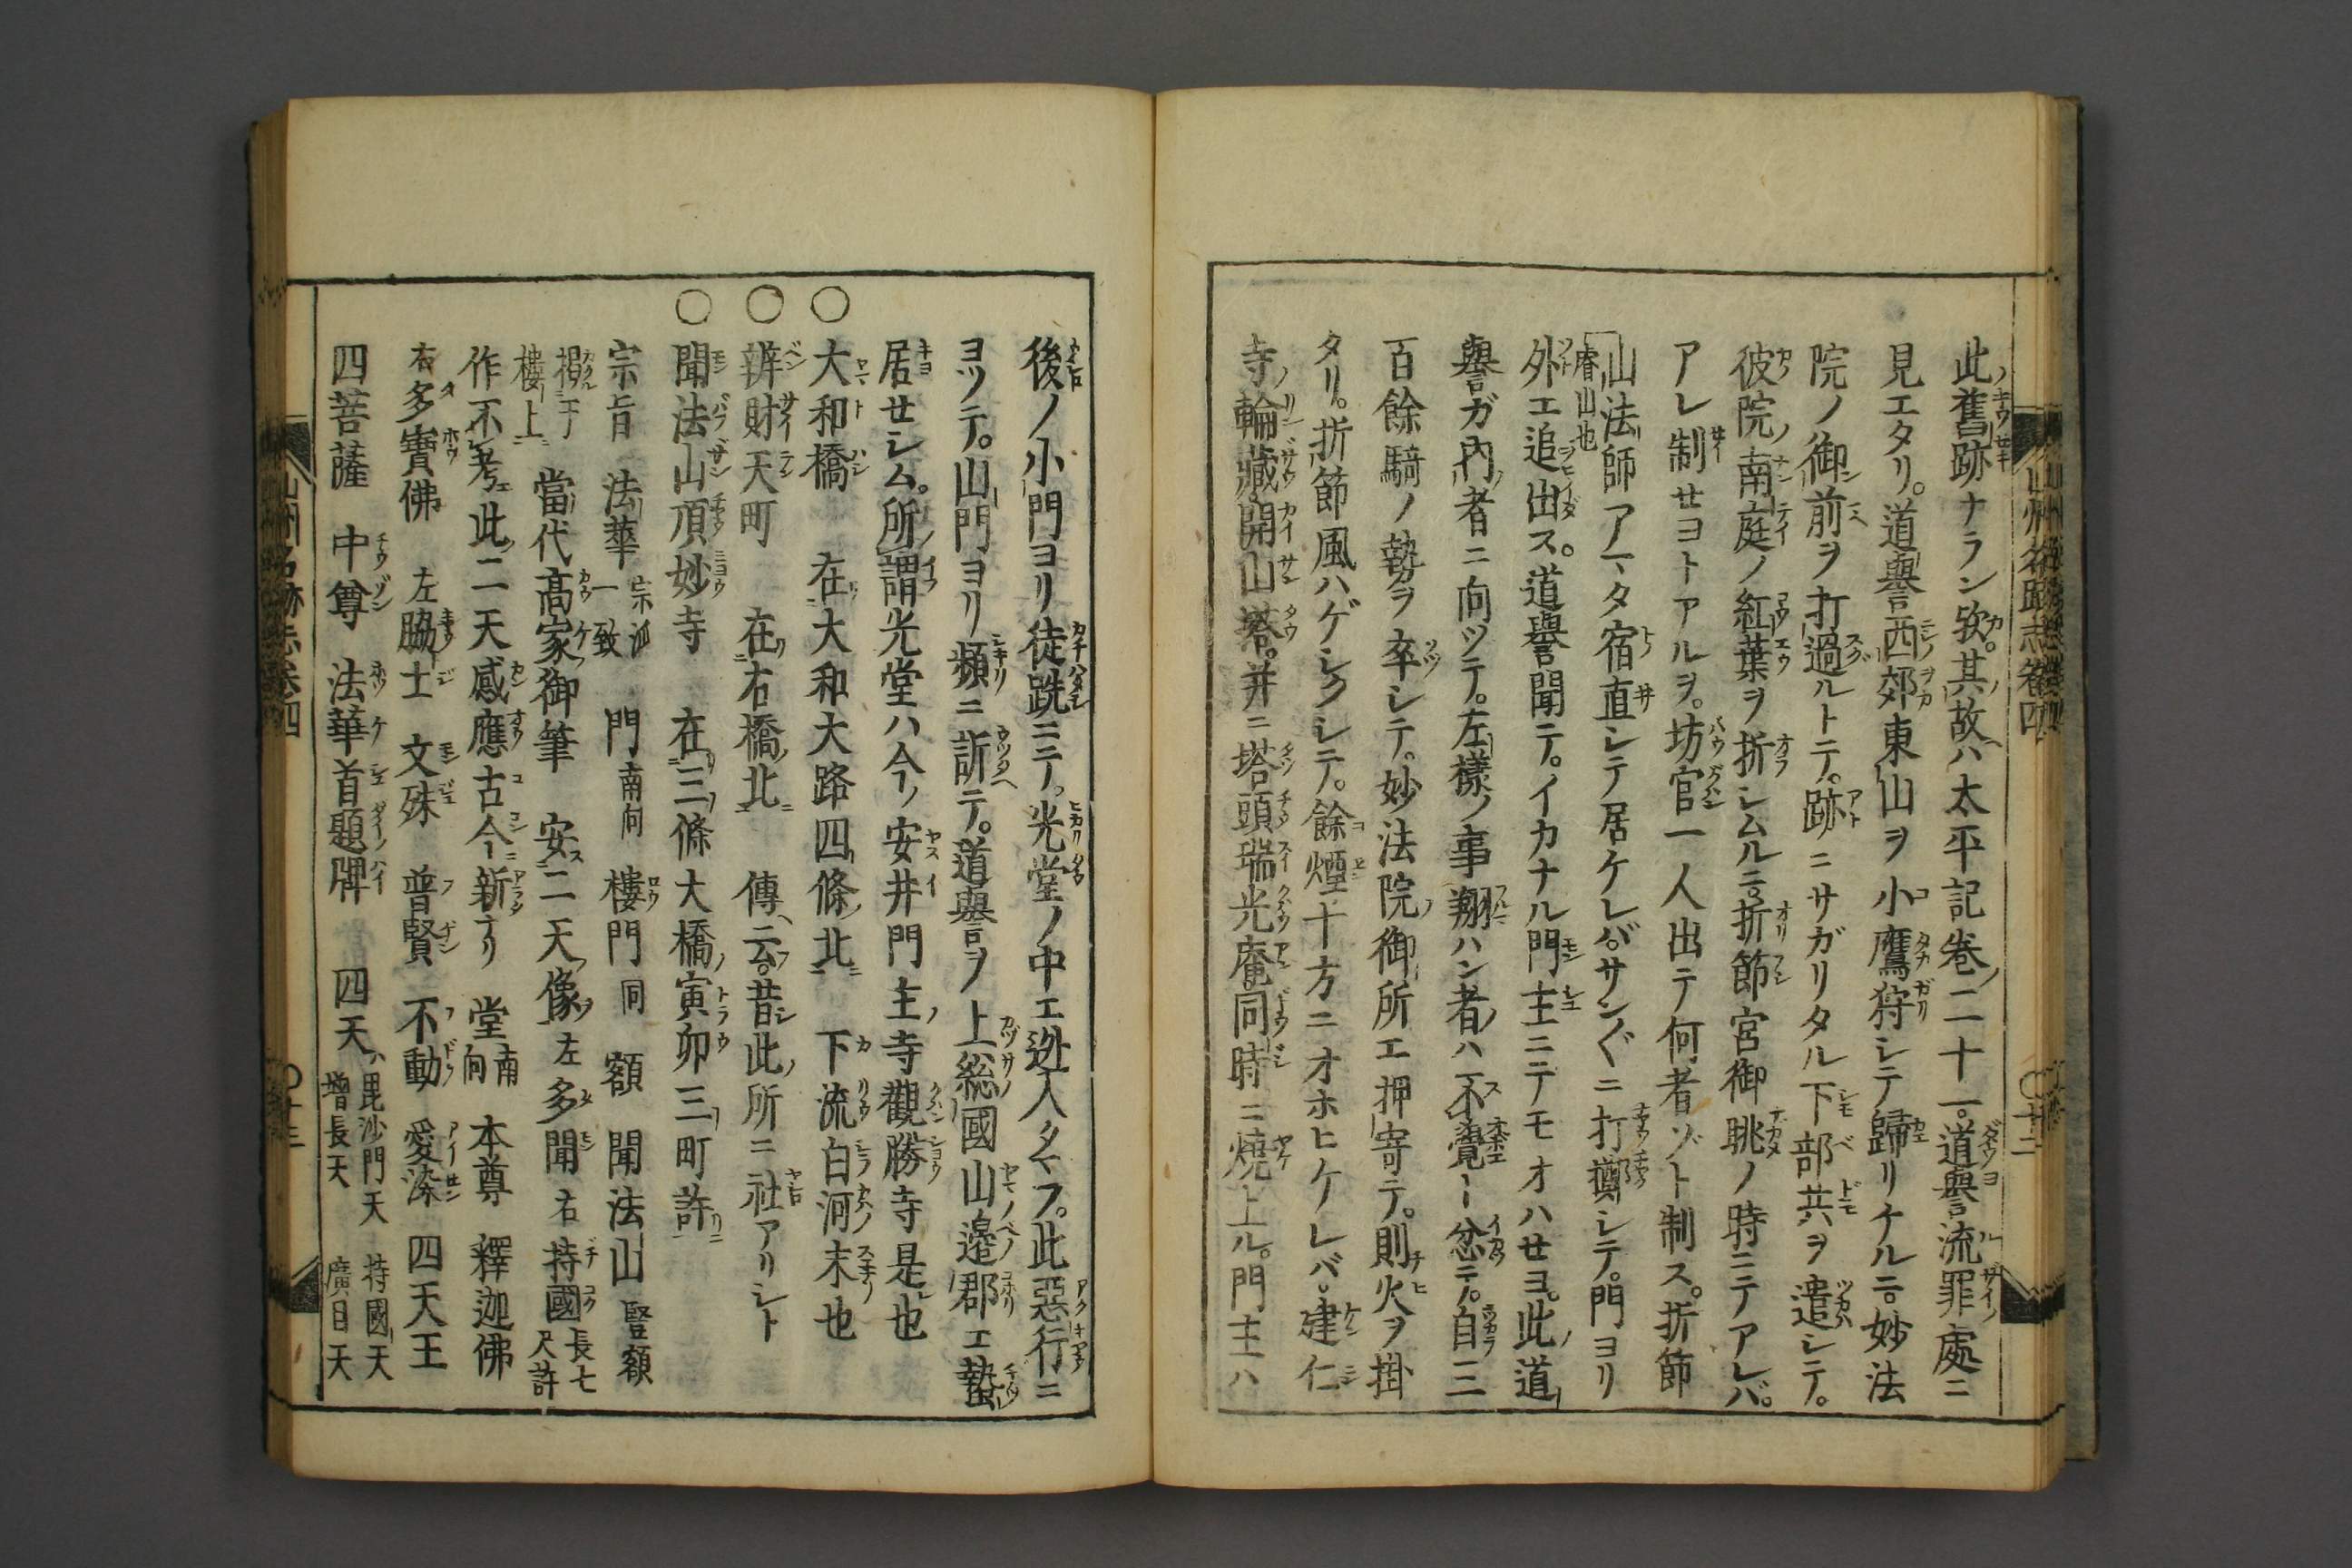 此舊跡ナラン欤。其故ハ太平記巻二十一。道譽流罪處ニ
見エタリ。道譽西郊東山ヲ小鷹狩シテ歸リケルニ。妙法
院ノ御前ヲ打過ルトテ。跡ニサガリタル下部共ヲ遣シテ。
彼院ノ南庭ノ紅葉ヲ折シムルニ。折節宮御眺ノ時ニテアレバ。
アレ制セヨトアルヲ。坊官一人出テ何者ゾト制ス。折節
山法師アマタ宿直シテ居ケレバ。サン〲ニ打擲シテ。門ヨリ
睿山也
外エ追出ス。道譽聞テ。イカナル門主ニテモオハせヨ。此道
譽ガ內者ニ向ツテ。左樣ノ事翔ハン者ハ不覺ト忿テ。自三
百餘騎ノ勢ヲ卒シテ。妙法院御所エ押寄テ。則火ヲ掛
タリ。折節風ハゲシクシテ。餘煙十方ニオホヒケレバ。建仁
寺輪藏。開山塔。并ニ塔頭瑞光庵同時ニ燒上ル。門主ハ
山州名跡志卷四
〇十二
後ノ小門ヨリ徒跣ニテ。光堂ノ中エ迯入タマフ。此惡行ニ
ヨツテ。山門ヨリ頻ニ訴テ。道譽ヲ上総國山邊郡エ蟄
居せシム。所謂光堂ハ今ノ安井門主寺觀勝寺是也
〇大和橋 在大和大路四條北 下流白河末也
〇辨財天町 在右橋北 傳云。昔此所ニ社アリシト
〇聞法山頂妙寺 在三條大橋寅卯三町許
宗旨 法華 宗派一致 門南向 樓門同 額 聞法山 竪額
揭于樓上 當代高家御筆 安二天像左多聞右持國長七尺許
作不考此二天感應古今新ナリ 堂南向 本尊 釋迦佛
右多寶佛 左脇士 文殊 普賢 不動 愛染 四天王
四菩薩 中尊 法華首題牌 四天 毘沙門天 持國天 增長天 廣目天
山州名跡志卷四
〇十三